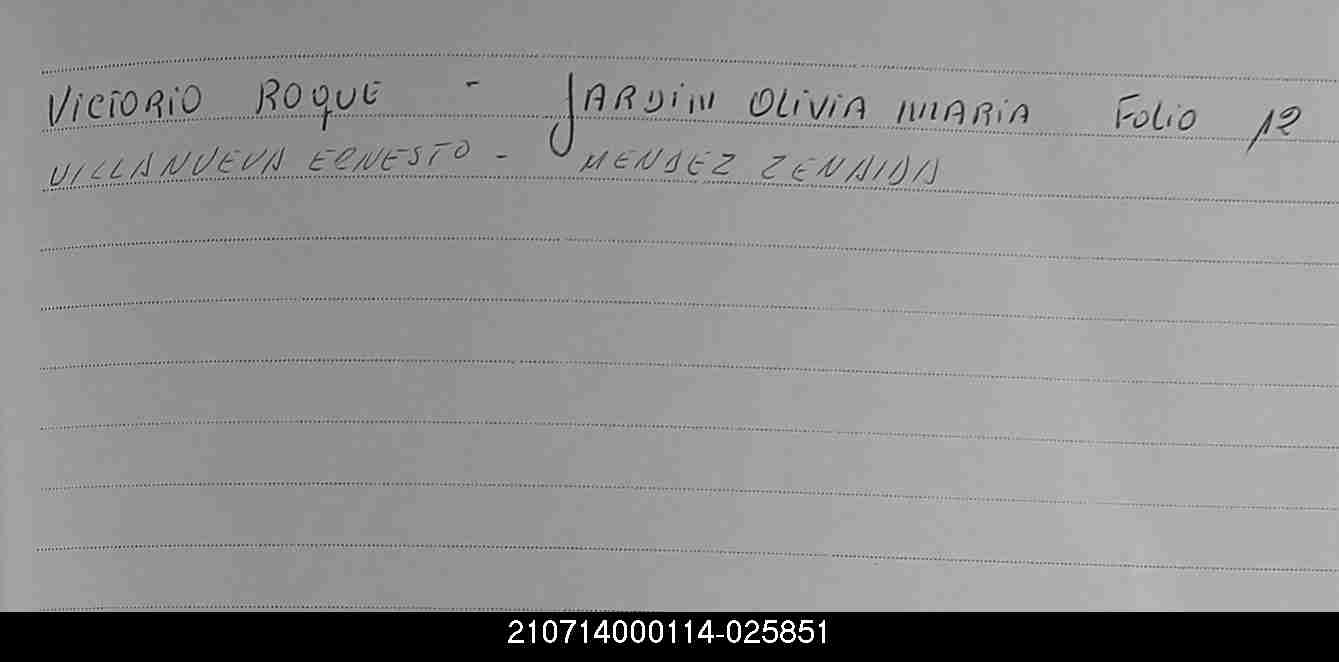 VICTORIO ROQUE - JARDIN OLIVIA MARIA Folio 12
VILLANUEVA ERNESTO - MENDEZ ZENAIDA
210714000114-025851